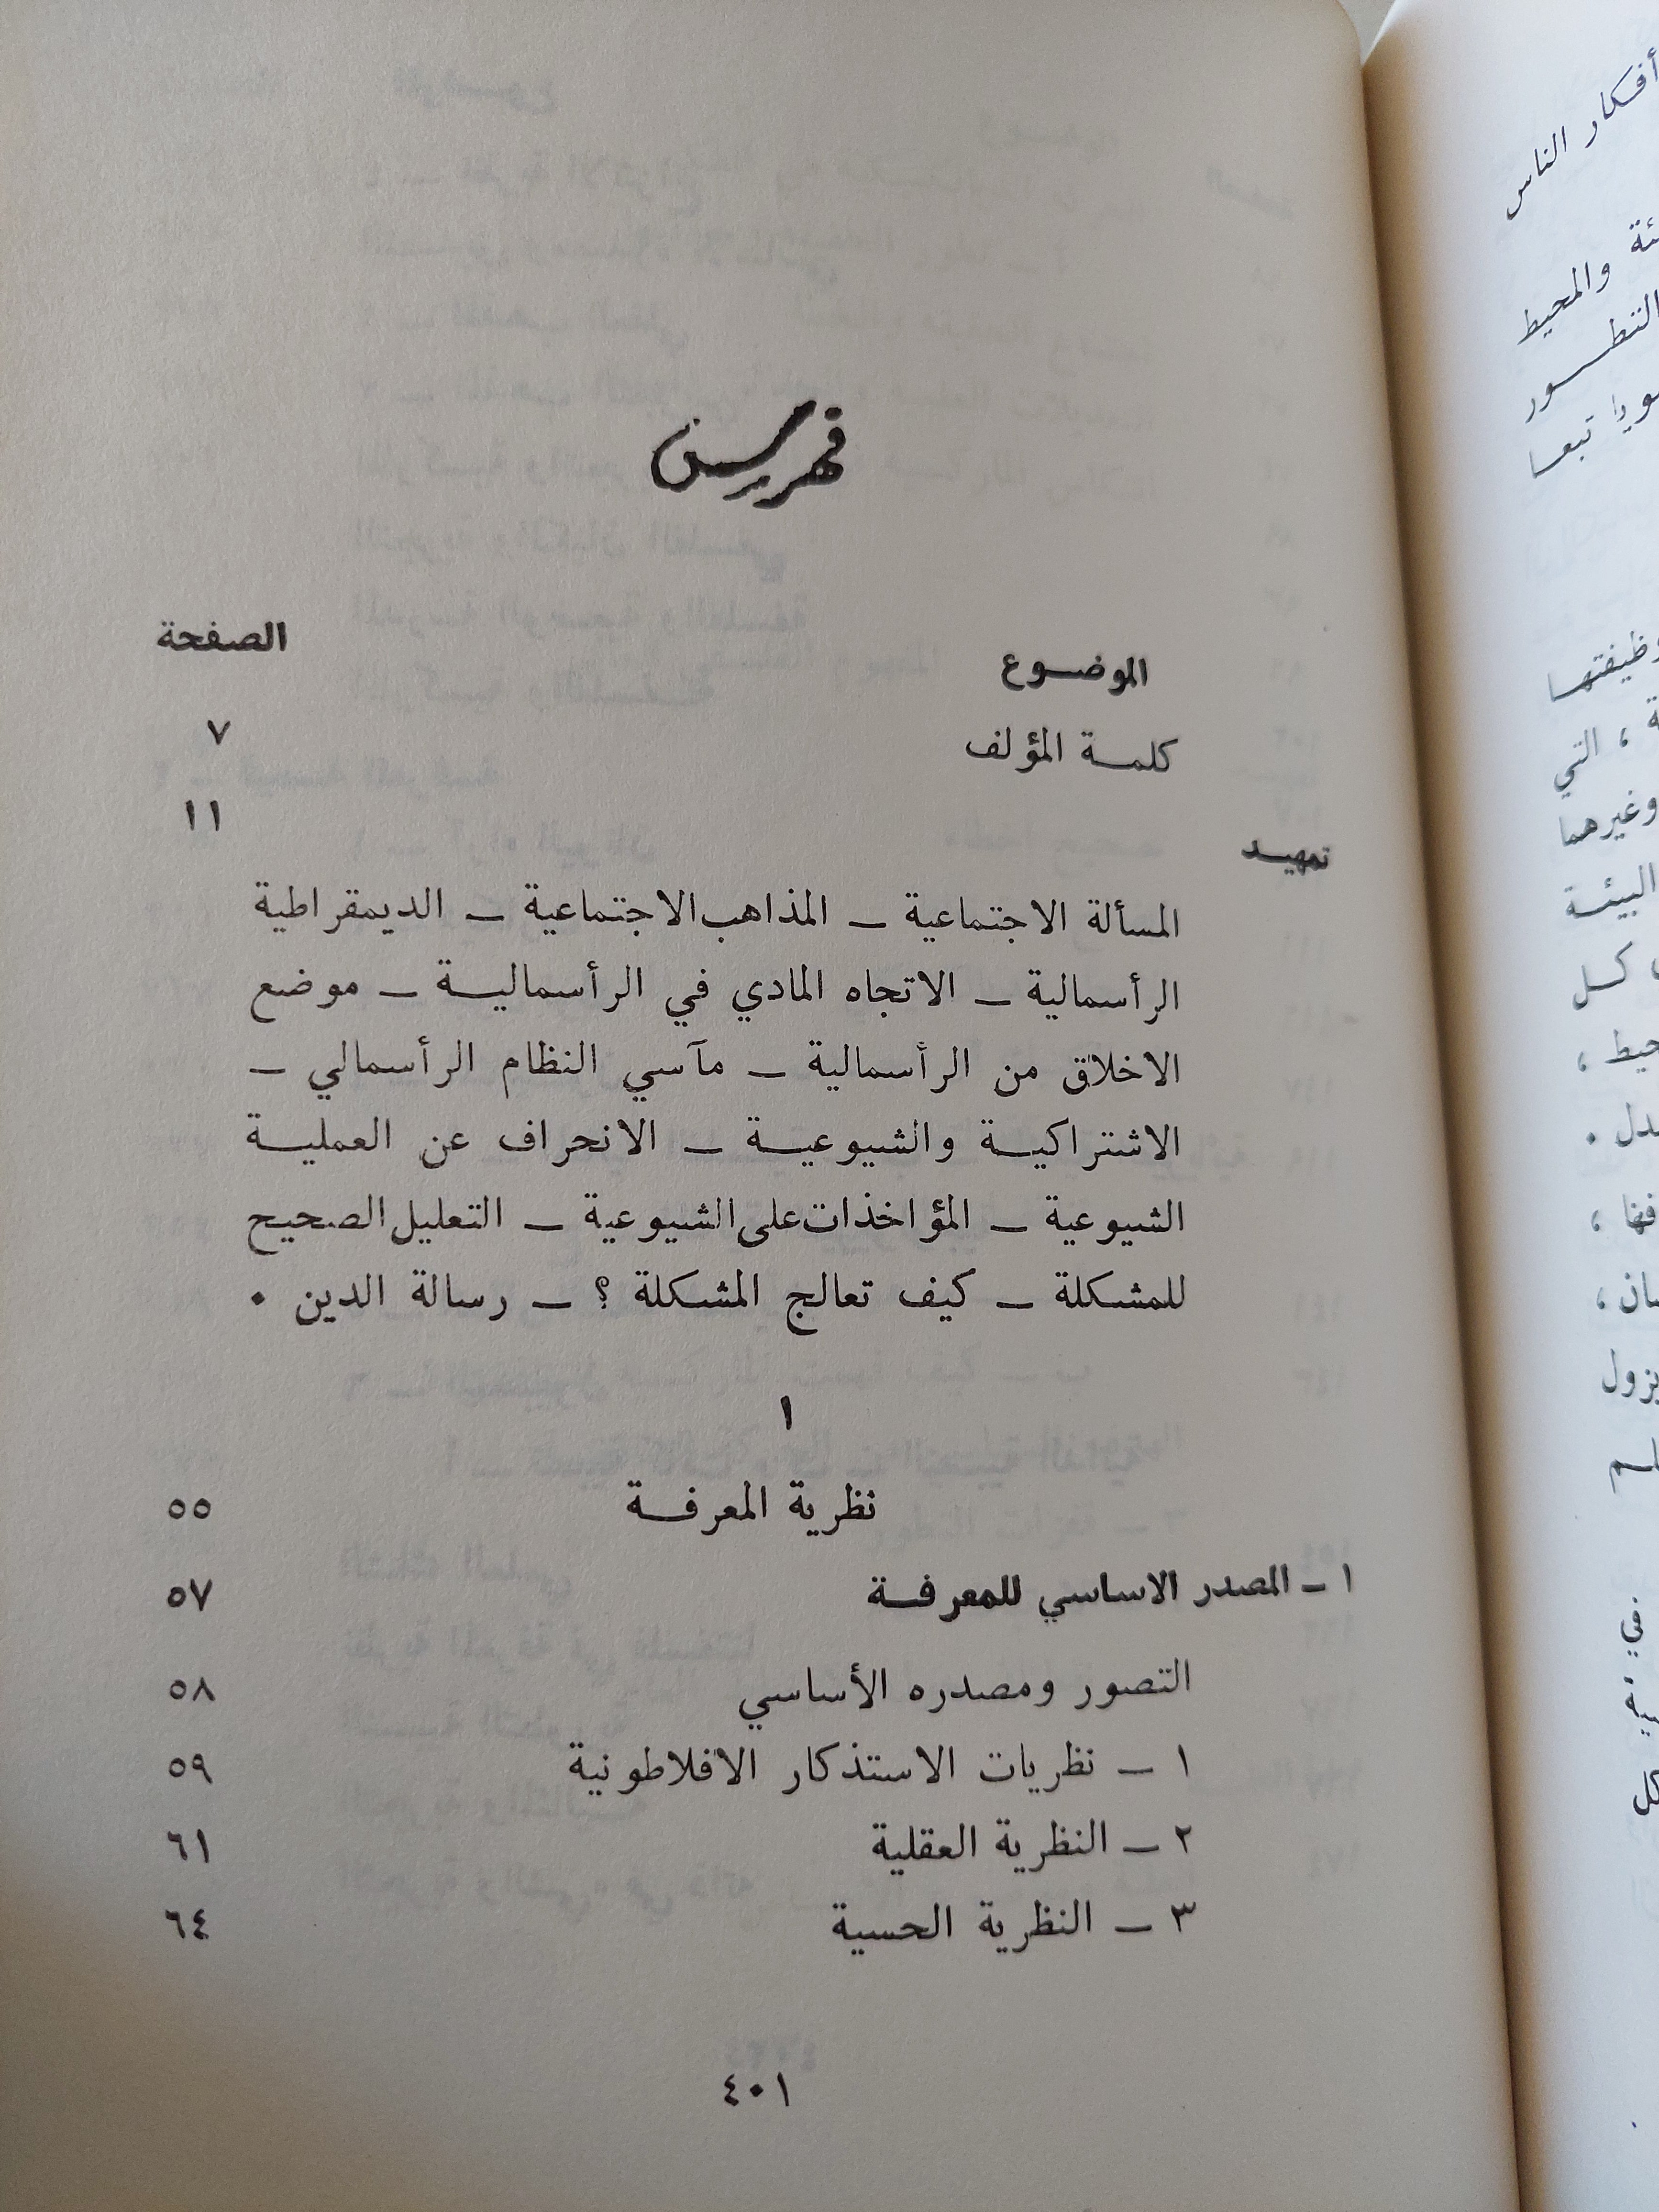 فهرس
الموضوع الصفحة
كلمة المؤلف ٧
تمهيد ١١
المسألة الاجتماعية – المذاهب الاجتماعية – الديمقراطية
الرأسمالية – الاتجاه المادي في الرأسمالية – موضع
الاخلاق من الرأسمالية – مآسي النظام الرأسمالي –
الاشتراكية والشيوعية – الانحراف عن العملية
الشيوعية – المؤاخذات على الشيوعية – التعليل الصحيح
للمشكلة – كيف تعالج المشكلة ؟ – رسالة الدين .
١
نظرية المعرفة ٥٥
١ – المصدر الاساسي للمعرفة ٥٧
التصور ومصدره الأساسي ٥٨
١ – نظريات الاستذكار الافلاطونية ٥٩
٢ – النظرية العقلية ٦١
٣ – النظرية الحسية ٦٤
٤٠١
أفكار الناس
والمحيط
تبعا
، التي
وغيرهما
البيئة
كل
،
في